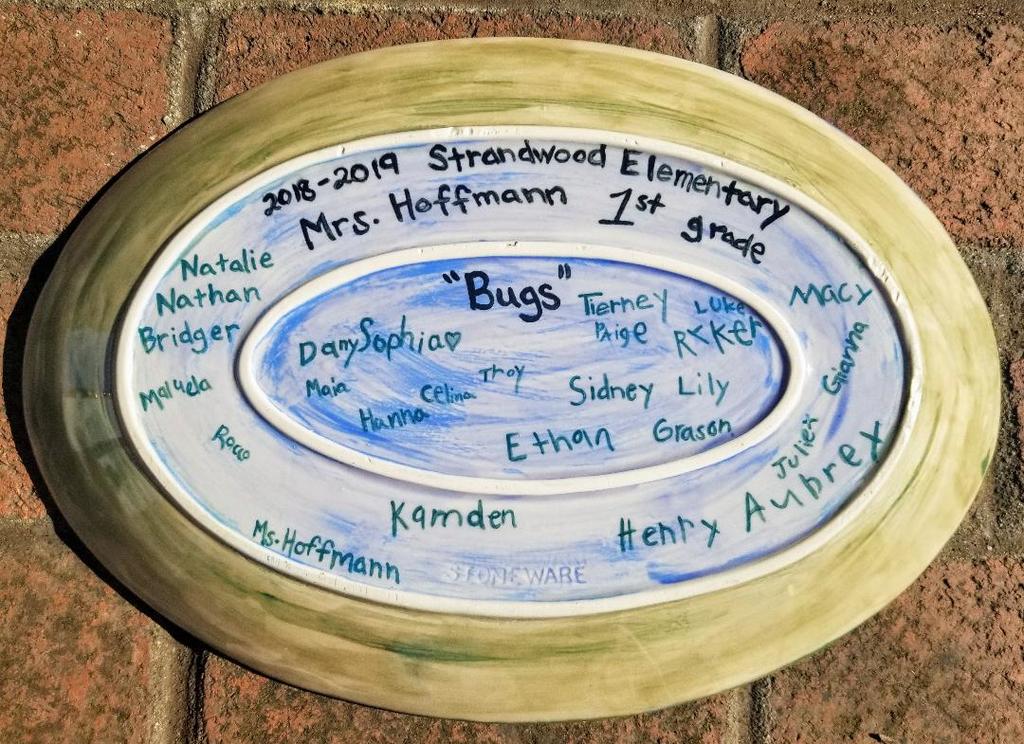 2018-2019 Strandwood Elementary
Mrs. Hoffmann 1st grade
"Bugs"
Natalie
Nathan
Bridger
Maluela
Rocco
Ms. Hoffmann
Dany Sophia♡
Maia
Hanna
Celina
Troy
Tierney
Paige
Luke
Ryker
Sidney Lily
Ethan Grason
Macy
Gianna
Julien
Aubrey
Henry
Kamden
STONEWARE